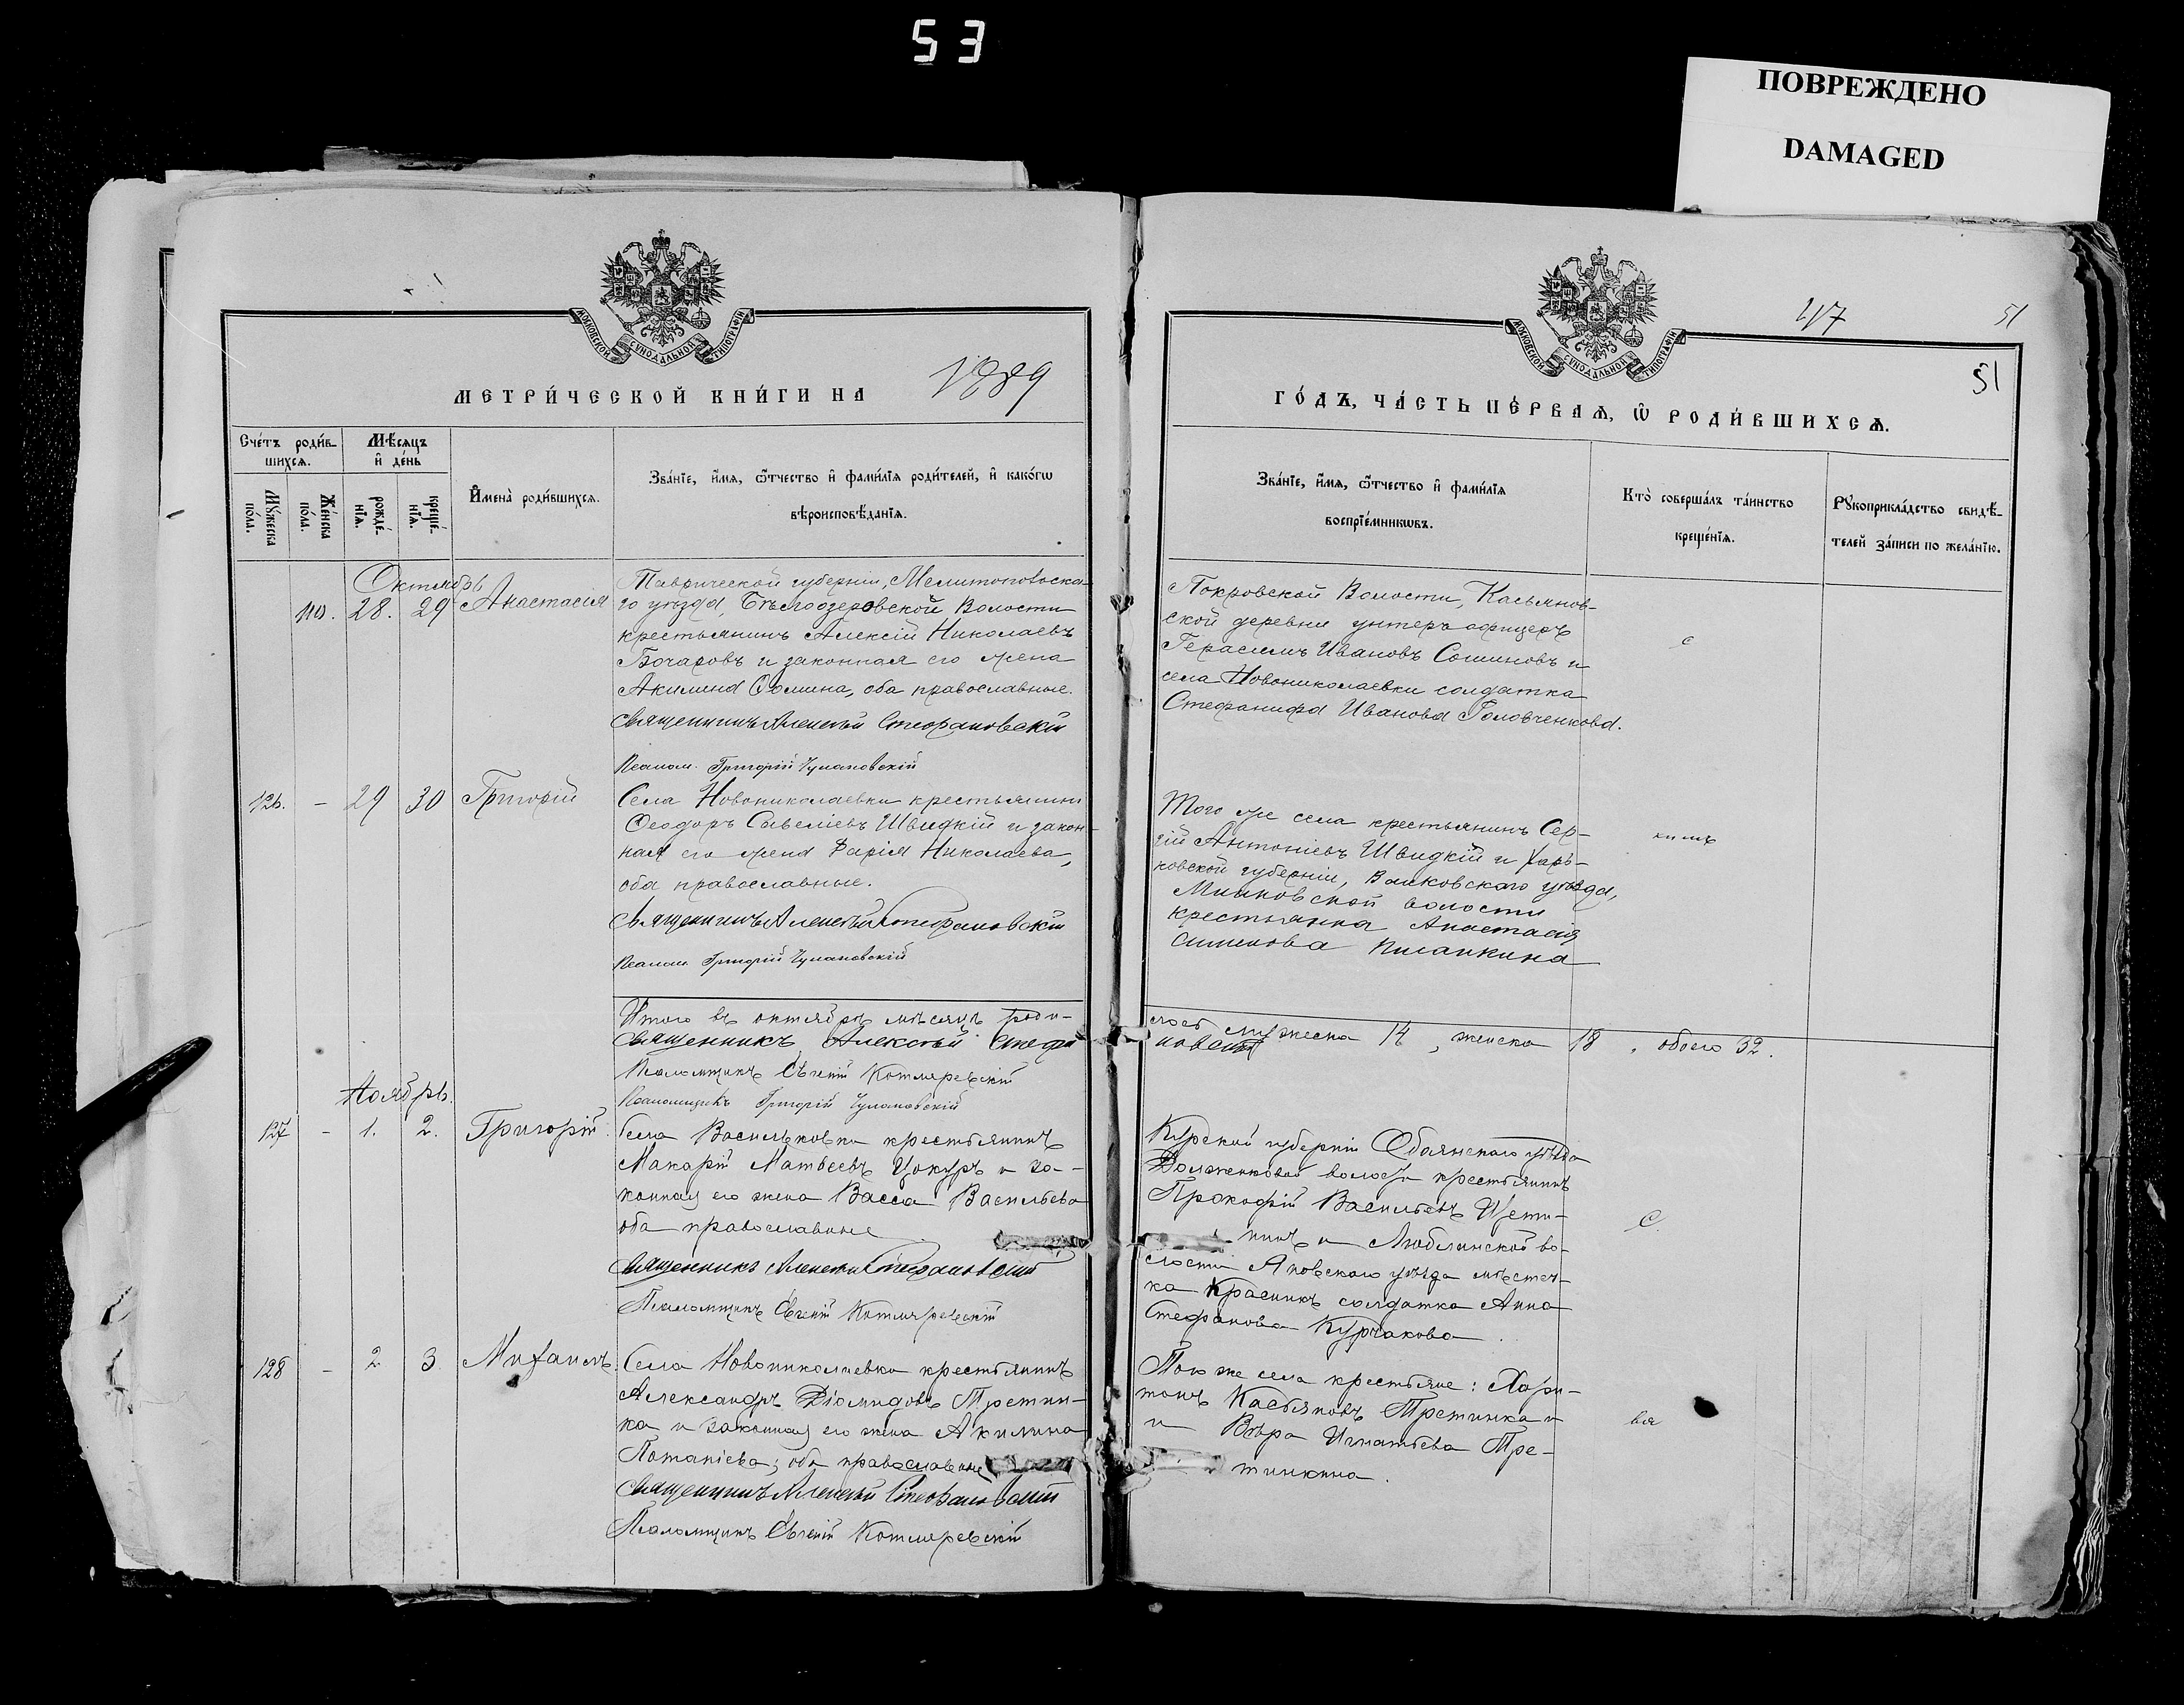 53
ПОВРЕЖДЕНО
DAMAGED
МОСКОВСКОЙ СѴНОДАЛЬНОЙ ТИПОГРАФІИ
МЕТРИ́ЧЕСКОЙ КНИ́ГИ НА 1889
Сче́тъ роди́в-
шихсѧ.
Мѣ́сѧцъ
и҆ де́нь
Мꙋ́жеска
по́ла.
Же́нска
по́ла.
рожде́-
нїѧ.
креще́-
нїѧ.
И҆мена̀ роди́вшихсѧ.
Зва́нїе, и҆́мѧ, ѻ҆́тчество и҆ фами́лїѧ роди́телей, и҆ како́гѡ
вѣроисповѣ́данїѧ.
Октябрь
110. 28. 29 Анастасія
Таврической губерніи, Мелитопольска-
го уѣзда, Бѣлоозеровской Волости
крестьянинъ Алексій Николаевъ
Бочаровъ и законная его жена
Акилина Ѳомина, оба православные.
Священникъ Алексѣй Стефановскій
Псалом. Григорій Чулановскій
126. – 29 30 Григорій
Села Новониколаевки крестьянинъ
Ѳеодоръ Савеліевъ Швидкій и закон-
ная его жена Дарія Николаева,
оба православные.
Священникъ Алексѣй Стефановскій
Псалом. Григорій Чулановскій
Итого въ октябрѣ мѣсяцѣ роди-
Священникъ Алексѣй Стефа
Псаломщикъ Евгеній Котляревскій
Псаломщикъ Григорій Чулановскій
Ноябрь.
127 – 1. 2. Григорій.
Села Васильковки крестьянинъ
Макарій Матвеевъ Цокуръ и за-
конная его жена Васса Васильева
оба православные
Священникъ Алексѣй Стефановскій
Псаломщикъ Евгеній Котляревскій
128 – 2 3. Михаилъ.
Села Новониколаевка крестьянинъ
Александръ Діомидовъ Третин-
ка и законная его жена Акилина
Потапіева; оба православные
Священникъ Алексѣй Стефановскій
Псаломщикъ Евгеній Котляревскій
МОСКОВСКОЙ СѴНОДАЛЬНОЙ ТИПОГРАФІИ
417
51
51
ГО́ДЪ, ЧА́СТЬ ПЕ́РВАѦ, Ѡ҆ РОДИ́ВШИХСѦ.
Зва́нїе, и҆́мѧ, ѻ҆́тчество и҆ фами́лїѧ
воспрїе́мникѡвъ.
Кто̀ соверша́лъ та́инство
креще́нїѧ.
Рꙋкоприкла́дство свидѣ́-
телей за́писи по жела́нїю.
Покровской Волости, Касьянов-
ской деревни унтеръ офицеръ
Герасимъ Ивановъ Сошиновъ и
села Новониколаевки солдатка
Стефанида Иванова Головченкова.
с
Того же села крестьянинъ Сер-
гій Антоніевъ Швидкій и Харь-
ковской губерніи, Валковскаго уѣзда,
волости
крестьянка Анастасія
Симонова Писанкина
лось мужеска 14, женска 18, обоего 32.
новскій
Курской губерніи Обоянскаго уѣзда
Долженковой волости крестьянинъ
Прокофій Васильевъ Щети-
нинъ и Люблинской во-
лости Яновскаго уѣзда мѣстеч-
ка Красникъ солдатка Анна
Стефанова Курчакова.
с
Того же села крестьяне: Хари-
тонъ Касьяновъ Третинка и
и Вѣра Игнатьева Тре-
тинкина.
вя